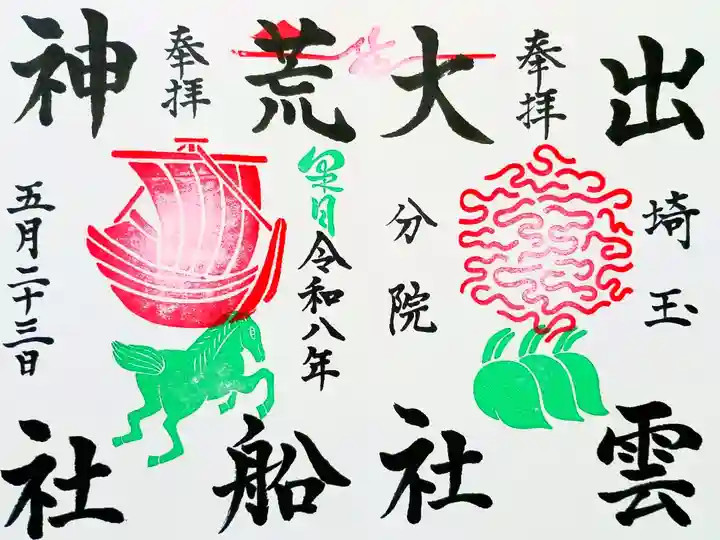 出雲
奉拝
埼玉
大社
分院
荒船
奉拝
皐月
令和八年
神社
五月二十三日